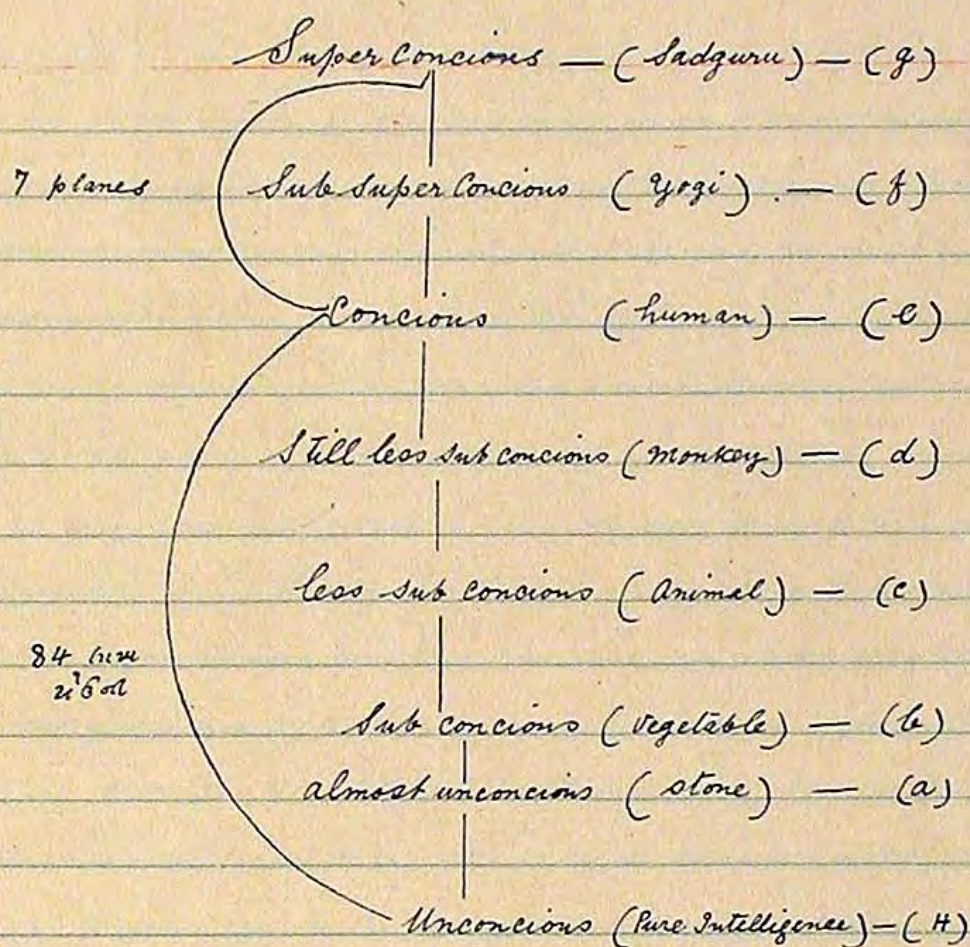 Super Concious — (Sadguru) — (g)
7 planes
Sub Super Concious (Yogi). — (f)
Concious (human) — (e)
Still less sub concious (Monkey) — (d)
less sub concious (Animal) — (c)
84
Sub concious (vegetable) — (b)
almost unconcious (stone) — (a)
Unconcious (Pure Intelligence) — (H)